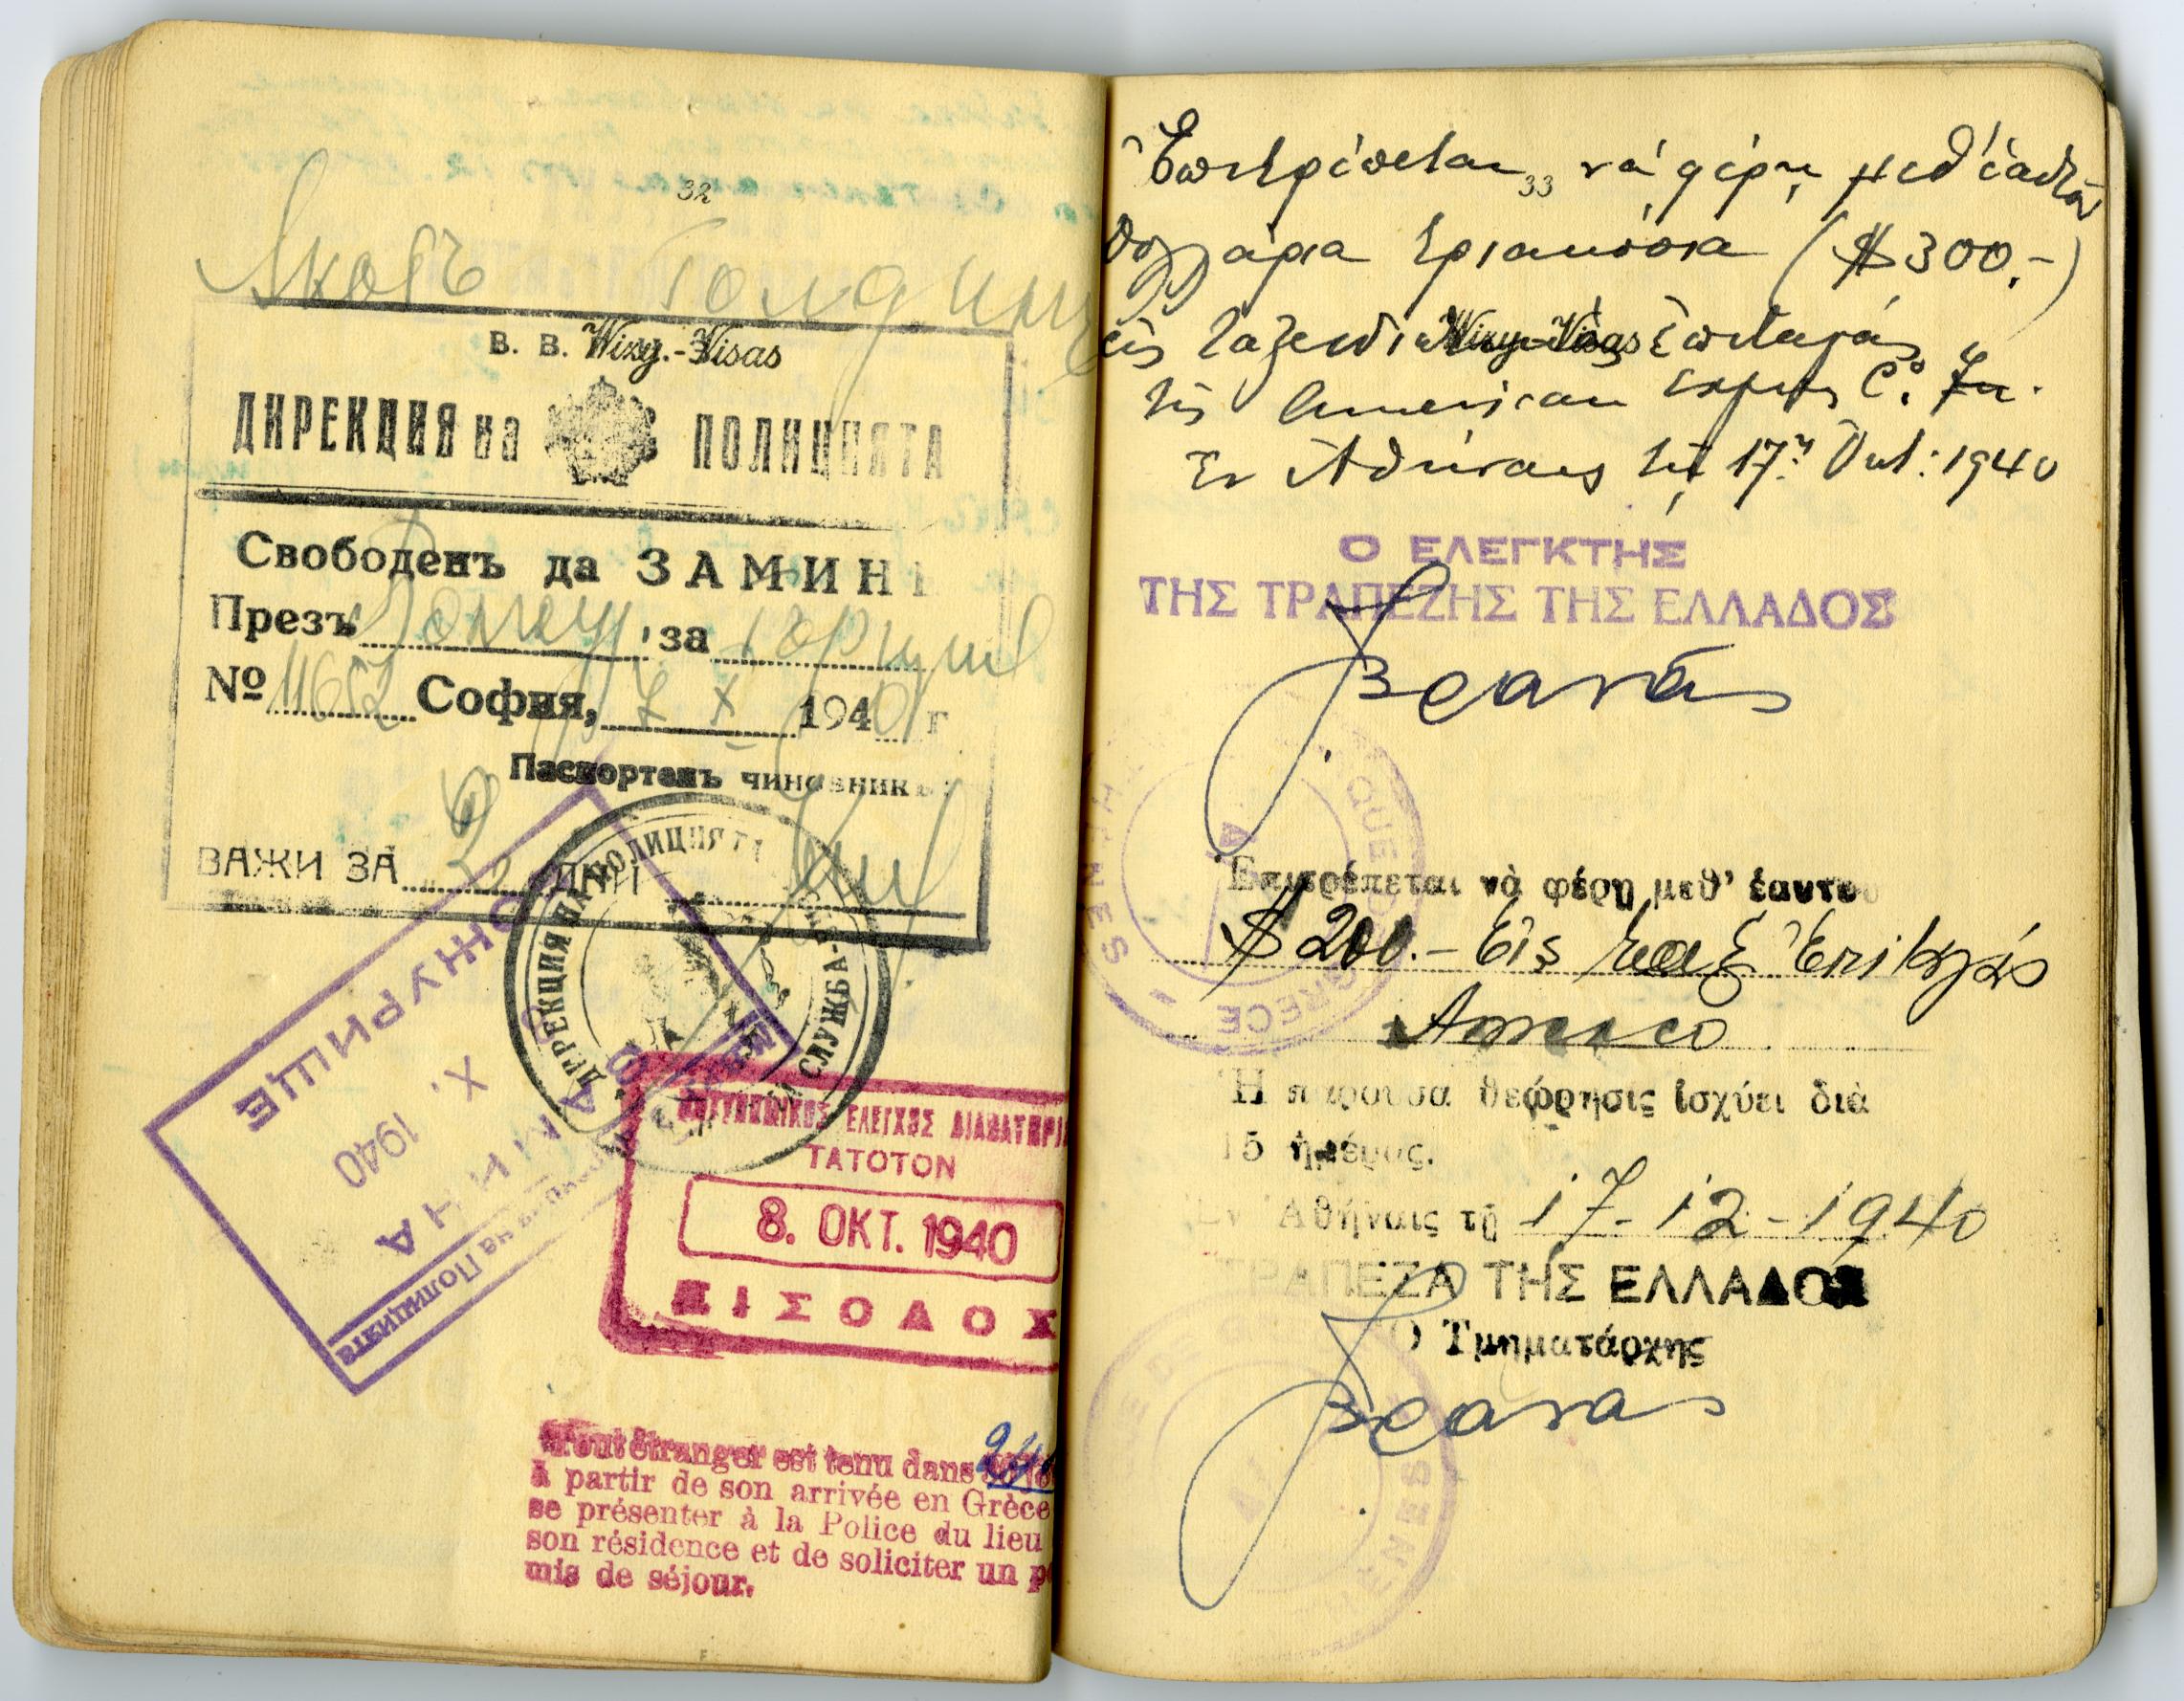 32
Яковъ Голдинъ
В. В. Wizy.-Visas
ДИРЕКЦИЯ на ПОЛИЦИЯТА
Свободенъ да ЗАМИН
Презъ за
№ 11652 София, 7 X 1940 г
Паспортенъ чиновникъ:
ВАЖИ ЗА ДНИ
ДИРЕКЦИЯ НА ПОЛИЦИЯТА
СЛУЖБА
БОЖУРИЩЕ
8 X. 1940
ЗАМИНА
на Полицията
ΕΛΕΓΧΟΣ ΔΙΑΒΑΤΗΡΙ
ΤΑΤΟΪΟΝ
8. ΟΚΤ. 1940
ΕΙΣΟΔΟΣ
Tout étranger est tenu dans
à partir de son arrivée en Grèce
se présenter à la Police du lieu
son résidence et de soliciter un pe
mis de séjour.
33
Ἐπιτρέπεται νά φέρῃ μεθ' ἑαυτοῦ
δολλάρια τριακόσια ($300.-)
εἰς ταξειδι Wizy-Visas ἐπιταγάς
τῆς American Express Cº. In.
Ἐν Ἀθήναις τῇ 17ῃ Ὀκτ: 1940
Ο ΕΛΕΓΚΤΗΣ
ΤΗΣ ΤΡΑΠΕΖΗΣ ΤΗΣ ΕΛΛΑΔΟΣ
Βρανάς
QUE DE GRECE
ATHENES
Ἐπιτρέπεται νὰ φέρῃ μεθ' ἑαυτο
$ 200.- Εἰς ταξ Ἐπιταγάς
Amexco
Ἡ παροῦσα θεώρησις ἰσχύει διὰ
15 ἡμέρας.
Ἐν Ἀθήναις τῇ 17-12-1940
ΤΡΑΠΕΖΑ ΤΗΣ ΕΛΛΑΔΟΣ
Ὁ Τμηματάρχης
Βρανας